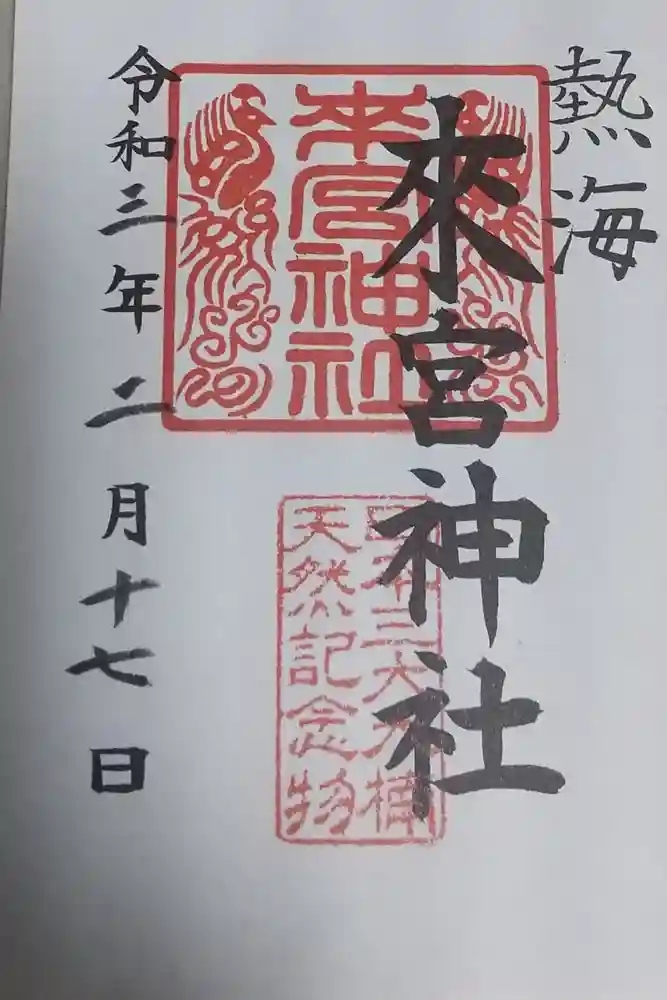 熱海
來宮神社
令和三年二月十七日
来宮神社
日本三大大楠
天然記念物